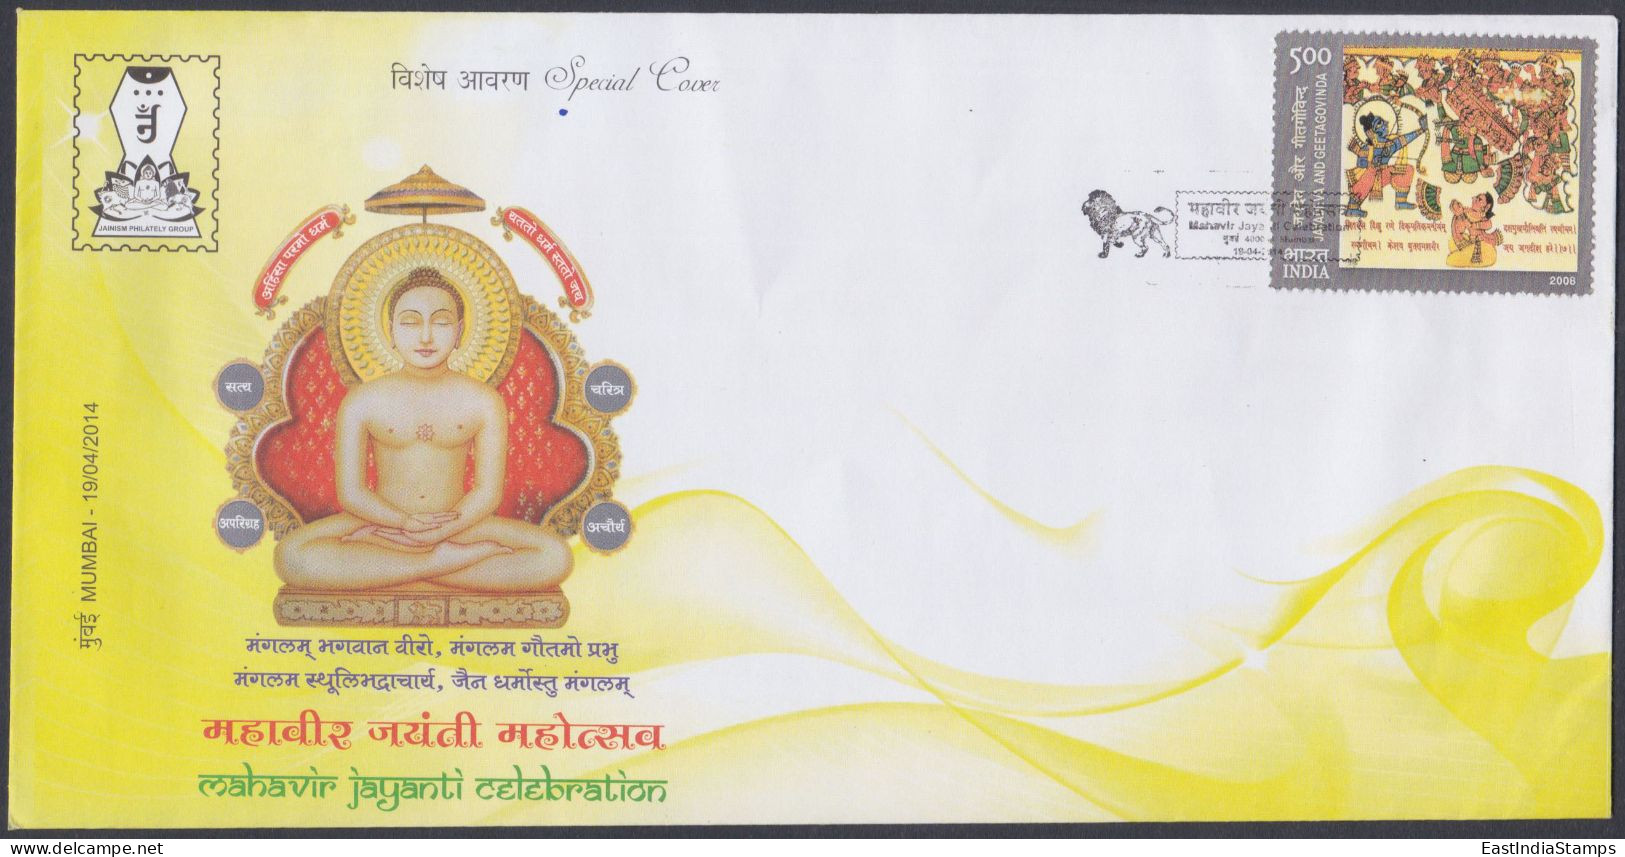 विशेष आवरण Special Cover
JAINISM PHILATELY GROUP
अहिंसा परमो धर्म
यततो धर्म स्ततो जय
सत्य
चरित्र
अपरिग्रह
अचौर्य
मुंबई MUMBAI - 19/04/2014
मंगलम् भगवान वीरो, मंगलम गौतमो प्रभु
मंगलम स्थूलिभद्राचार्य, जैन धर्मोस्तु मंगलम्
महावीर जयंती महोत्सव
mahavir jayanti celebration
5.00
जयदेव और गीतगोविन्द
JAYADEVA AND GEETAGOVINDA
भारत
INDIA
2008
महावीर जयंती महोत्सव
Mahavir Jayanti Celebration
मुंबई Mumbai
19-04-2014
जय जगदीश हरे
EastIndiaStamps
delcampe.com